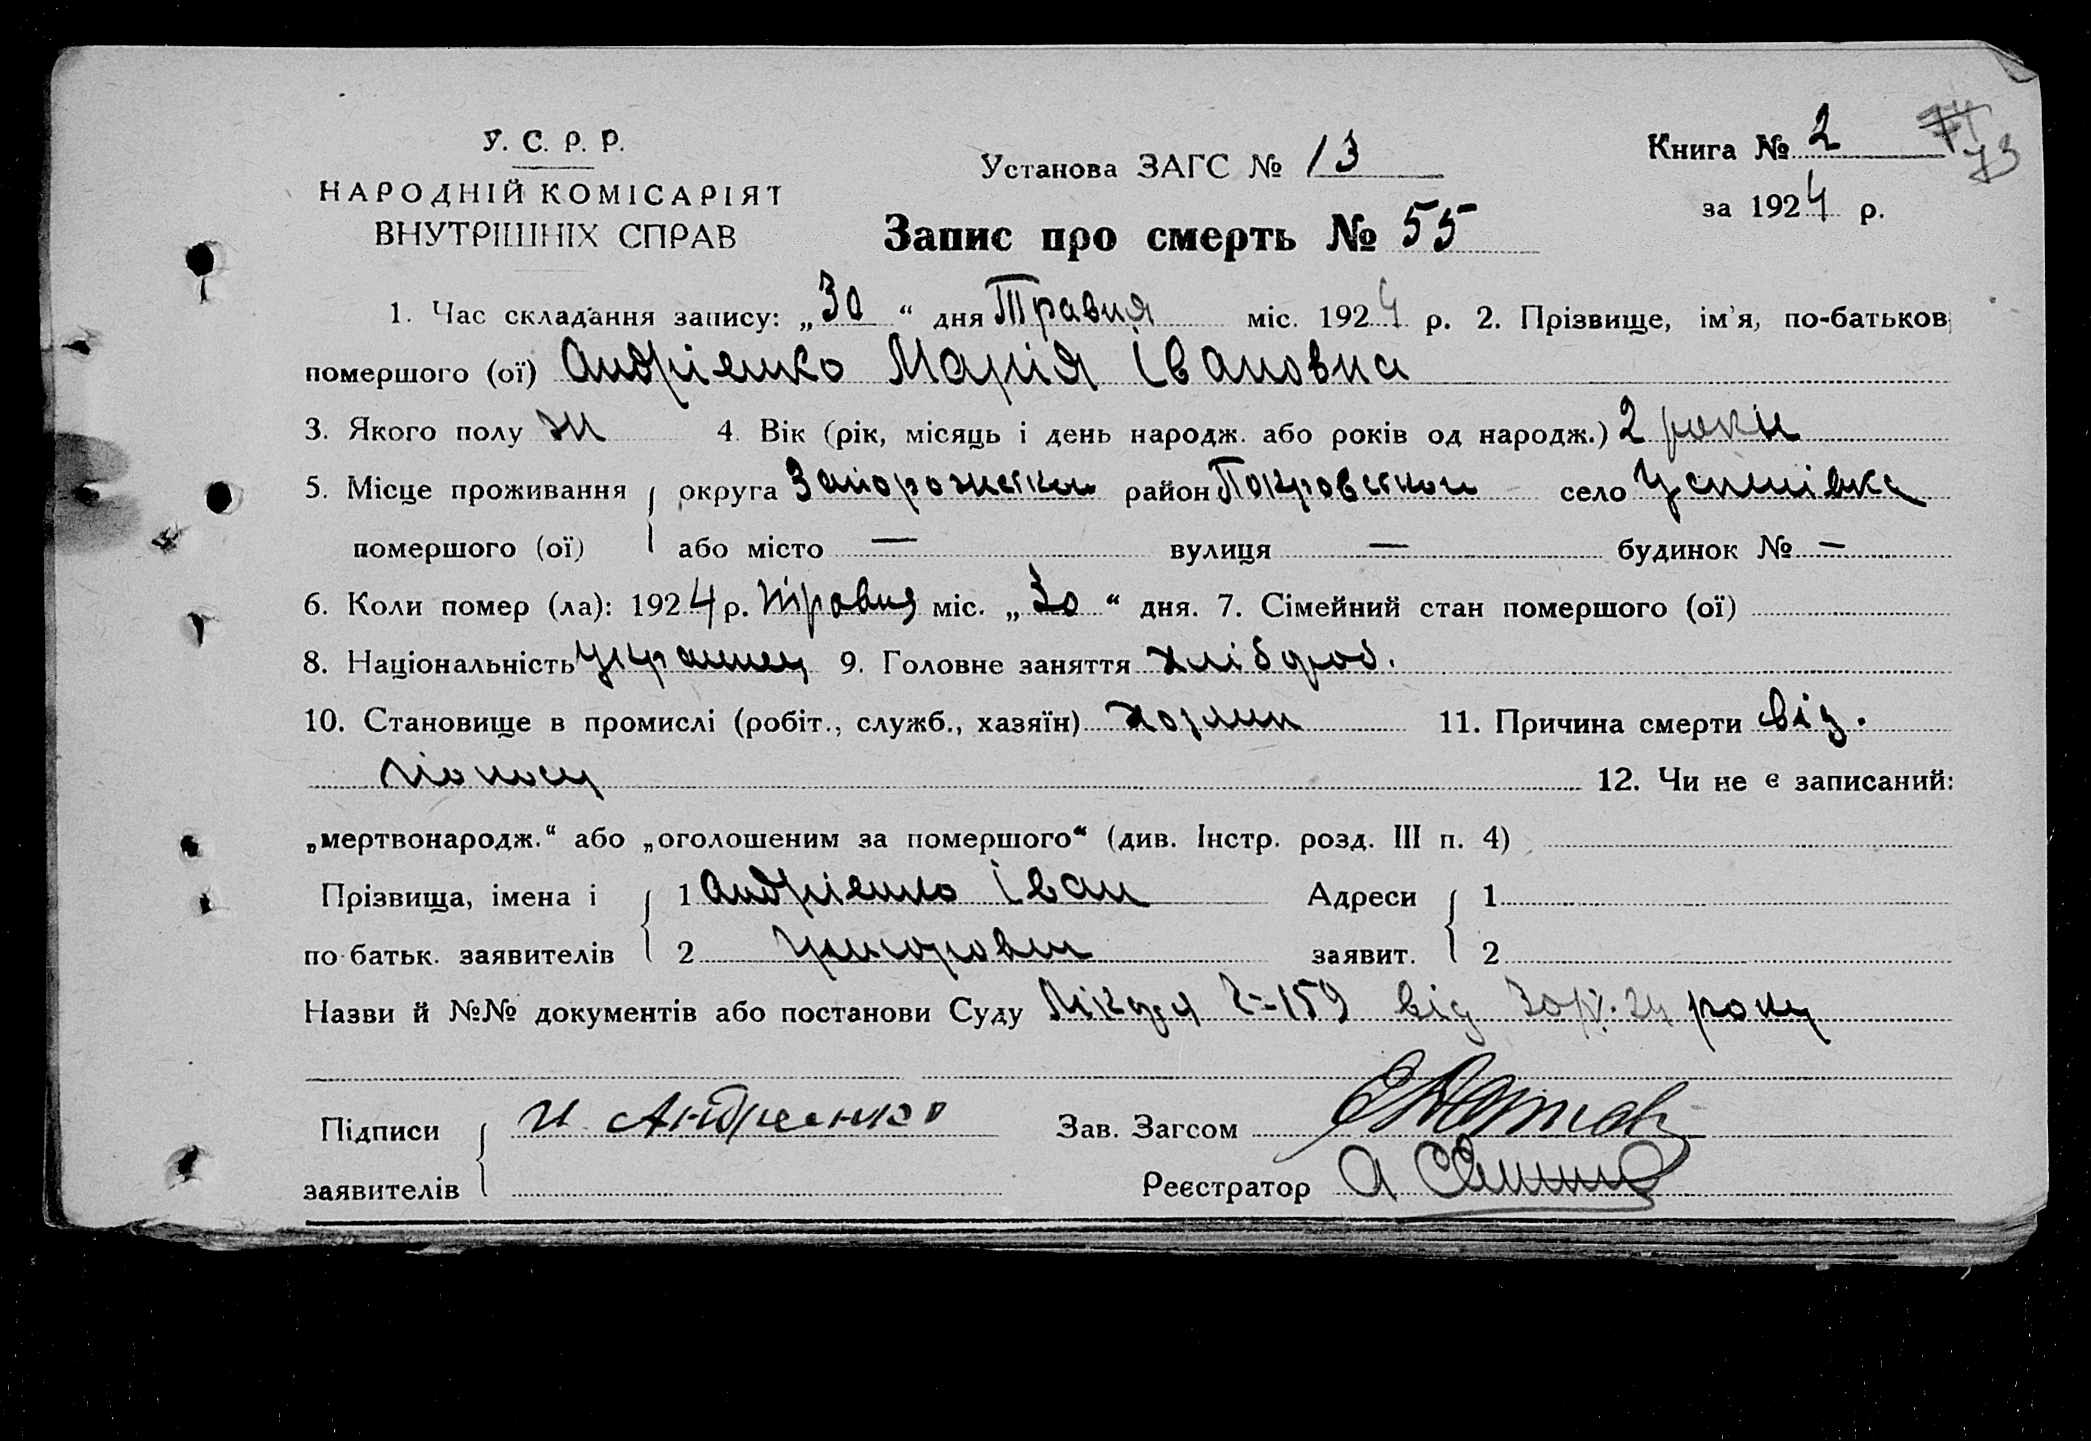 У. С. Р. Р.
НАРОДНІЙ КОМІСАРІЯТ
ВНУТРІШНІХ СПРАВ
Установа ЗАГС № 13
Книга № 2
73
за 1924 р.
Запис про смерть № 55
1. Час складання запису: „30“ дня Травня міс. 1924 р. 2. Прізвище, ім'я, по-батьков
помершого (ої) Андрієнко Марія Івановна
3. Якого полу ж 4. Вік (рік, місяць і день народж. або років од народж.) 2 роки
5. Місце проживання округа Запорожської район Покровської село Успенівка
помершого (ої) або місто — вулиця — будинок № —
6. Коли помер (ла): 1924 р. травня міс. „30“ дня. 7. Сімейний стан помершого (ої)
8. Національність 9. Головне заняття хлібороб.
10. Становище в промислі (робіт., служб., хазяїн) 11. Причина смерти від.
поносу 12. Чи не є записаний:
„мертвонародж.“ або „оголошеним за помершого“ (див. Інстр. розд. III п. 4)
Прізвища, імена і 1 Андрієнко Іван Адреси 1
по батьк. заявителів 2 заявит. 2
Назви й №№ документів або постанови Суду 159 від року
Підписи И Андриенко Зав. Загсом
заявителів Реєстратор А